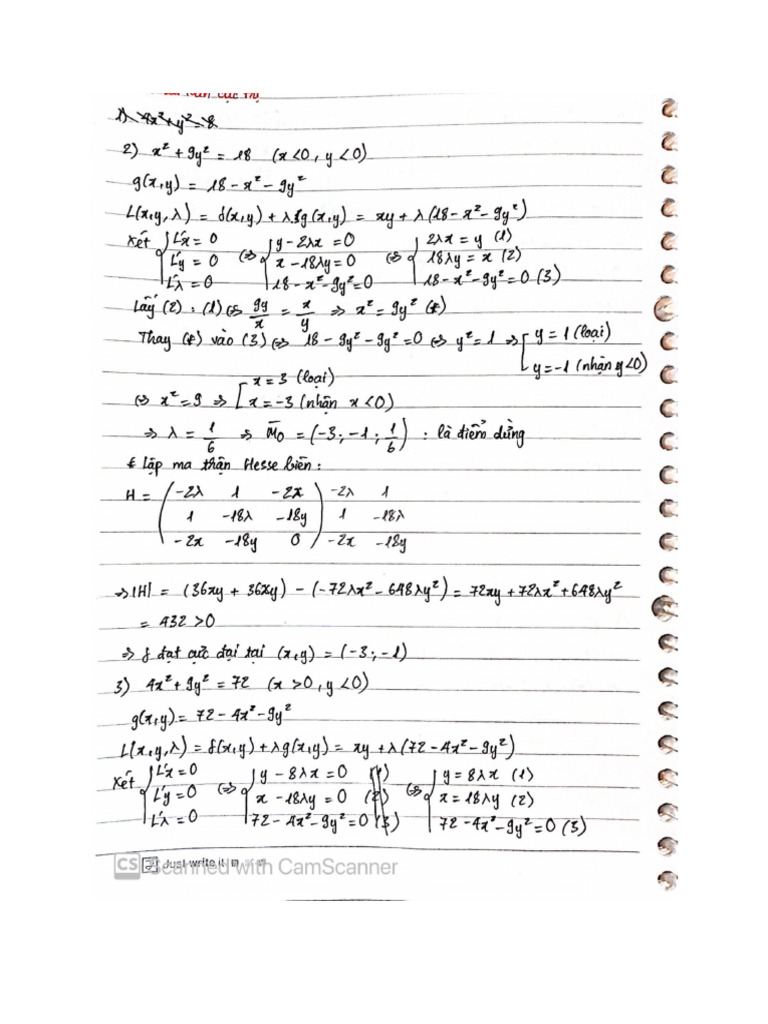 1) 4x² + y² = 8
2) x² + 9y² = 18 (x < 0, y < 0)
g(x,y) = 18 - x² - 9y²
L(x,y,λ) = f(x,y) + λg(x,y) = xy + λ(18 - x² - 9y²)
Xét { L'x = 0 ; L'y = 0 ; L'λ = 0 (⇔) { y - 2λx = 0 ; x - 18λy = 0 ; 18 - x² - 9y² = 0 (⇔) { 2λx = y (1) ; 18λy = x (2) ; 18 - x² - 9y² = 0 (3)
Lấy (2) : (1) ⇔ 9y/x = x/y ⇒ x² = 9y² (*)
Thay (*) vào (3) ⇔ 18 - 9y² - 9y² = 0 ⇔ y² = 1 ⇒ [ y = 1 (loại) ; y = -1 (nhận y < 0)
⇔ x² = 9 ⇒ [ x = 3 (loại) ; x = -3 (nhận x < 0)
⇒ λ = 1/6 ⇒ M₀ = (-3; -1; 1/6) : là điểm dừng
* Lập ma thận Hesse biên:
H = ( -2λ 1 -2x ) -2λ 1
1 -18λ -18y 1 -18λ
-2x -18y 0 -2x -18y
⇒ |H| = (36xy + 36xy) - (-72λx² - 648λy²) = 72xy + 72λx² + 648λy²
= 432 > 0
⇒ f đạt cực đại tại (x,y) = (-3; -1)
3) 4x² + 9y² = 72 (x > 0, y < 0)
g(x,y) = 72 - 4x² - 9y²
L(x,y,λ) = f(x,y) + λg(x,y) = xy + λ(72 - 4x² - 9y²)
Xét { L'x = 0 ; L'y = 0 ; L'λ = 0 (⇔) { y - 8λx = 0 (1) ; x - 18λy = 0 (2) ; 72 - 4x² - 9y² = 0 (3) (⇔) { y = 8λx (1) ; x = 18λy (2) ; 72 - 4x² - 9y² = 0 (3)
Just write it
CS Scanned with CamScanner